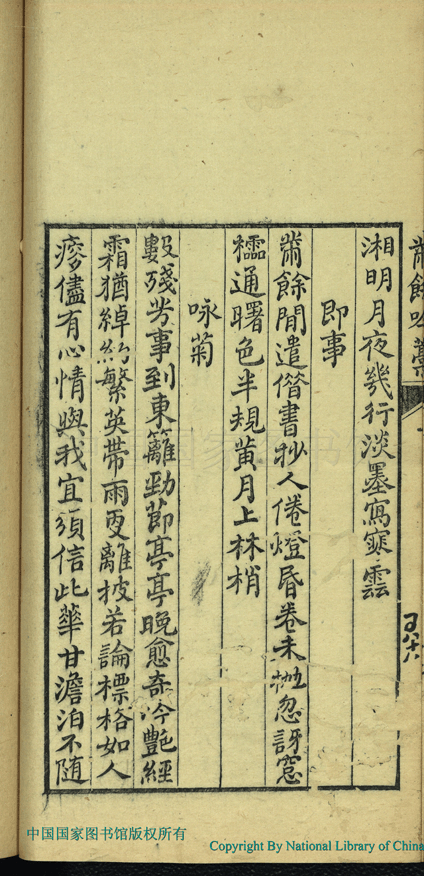 黹餘吟藁
湘明月夜幾行淡墨寫雲
即事
黹餘閒遣偕書抄人倦燈昬卷未抛忽訝窓
櫺通曙色半規黄月上林梢
咏菊
數殘芳事到東籬勁節亭亭晚愈奇冷艶經
霜猶綽約繁英帶雨更離披若論標格如人
瘦儘有心情與我宜須信此華甘澹泊不随
中国国家图书馆版权所有
Copyright By National Library of China